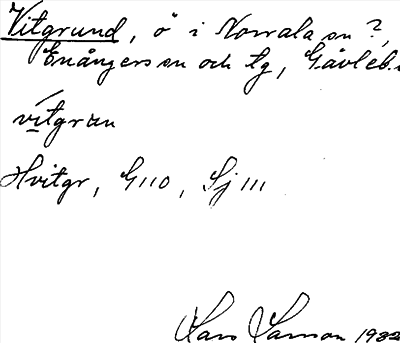 Vitgrund, ö i Norrala sn?,
Enångers sn och tg, Gävleb.
vítgrun
Hvitgr, G110, Sj 111
Lars Larson 1982